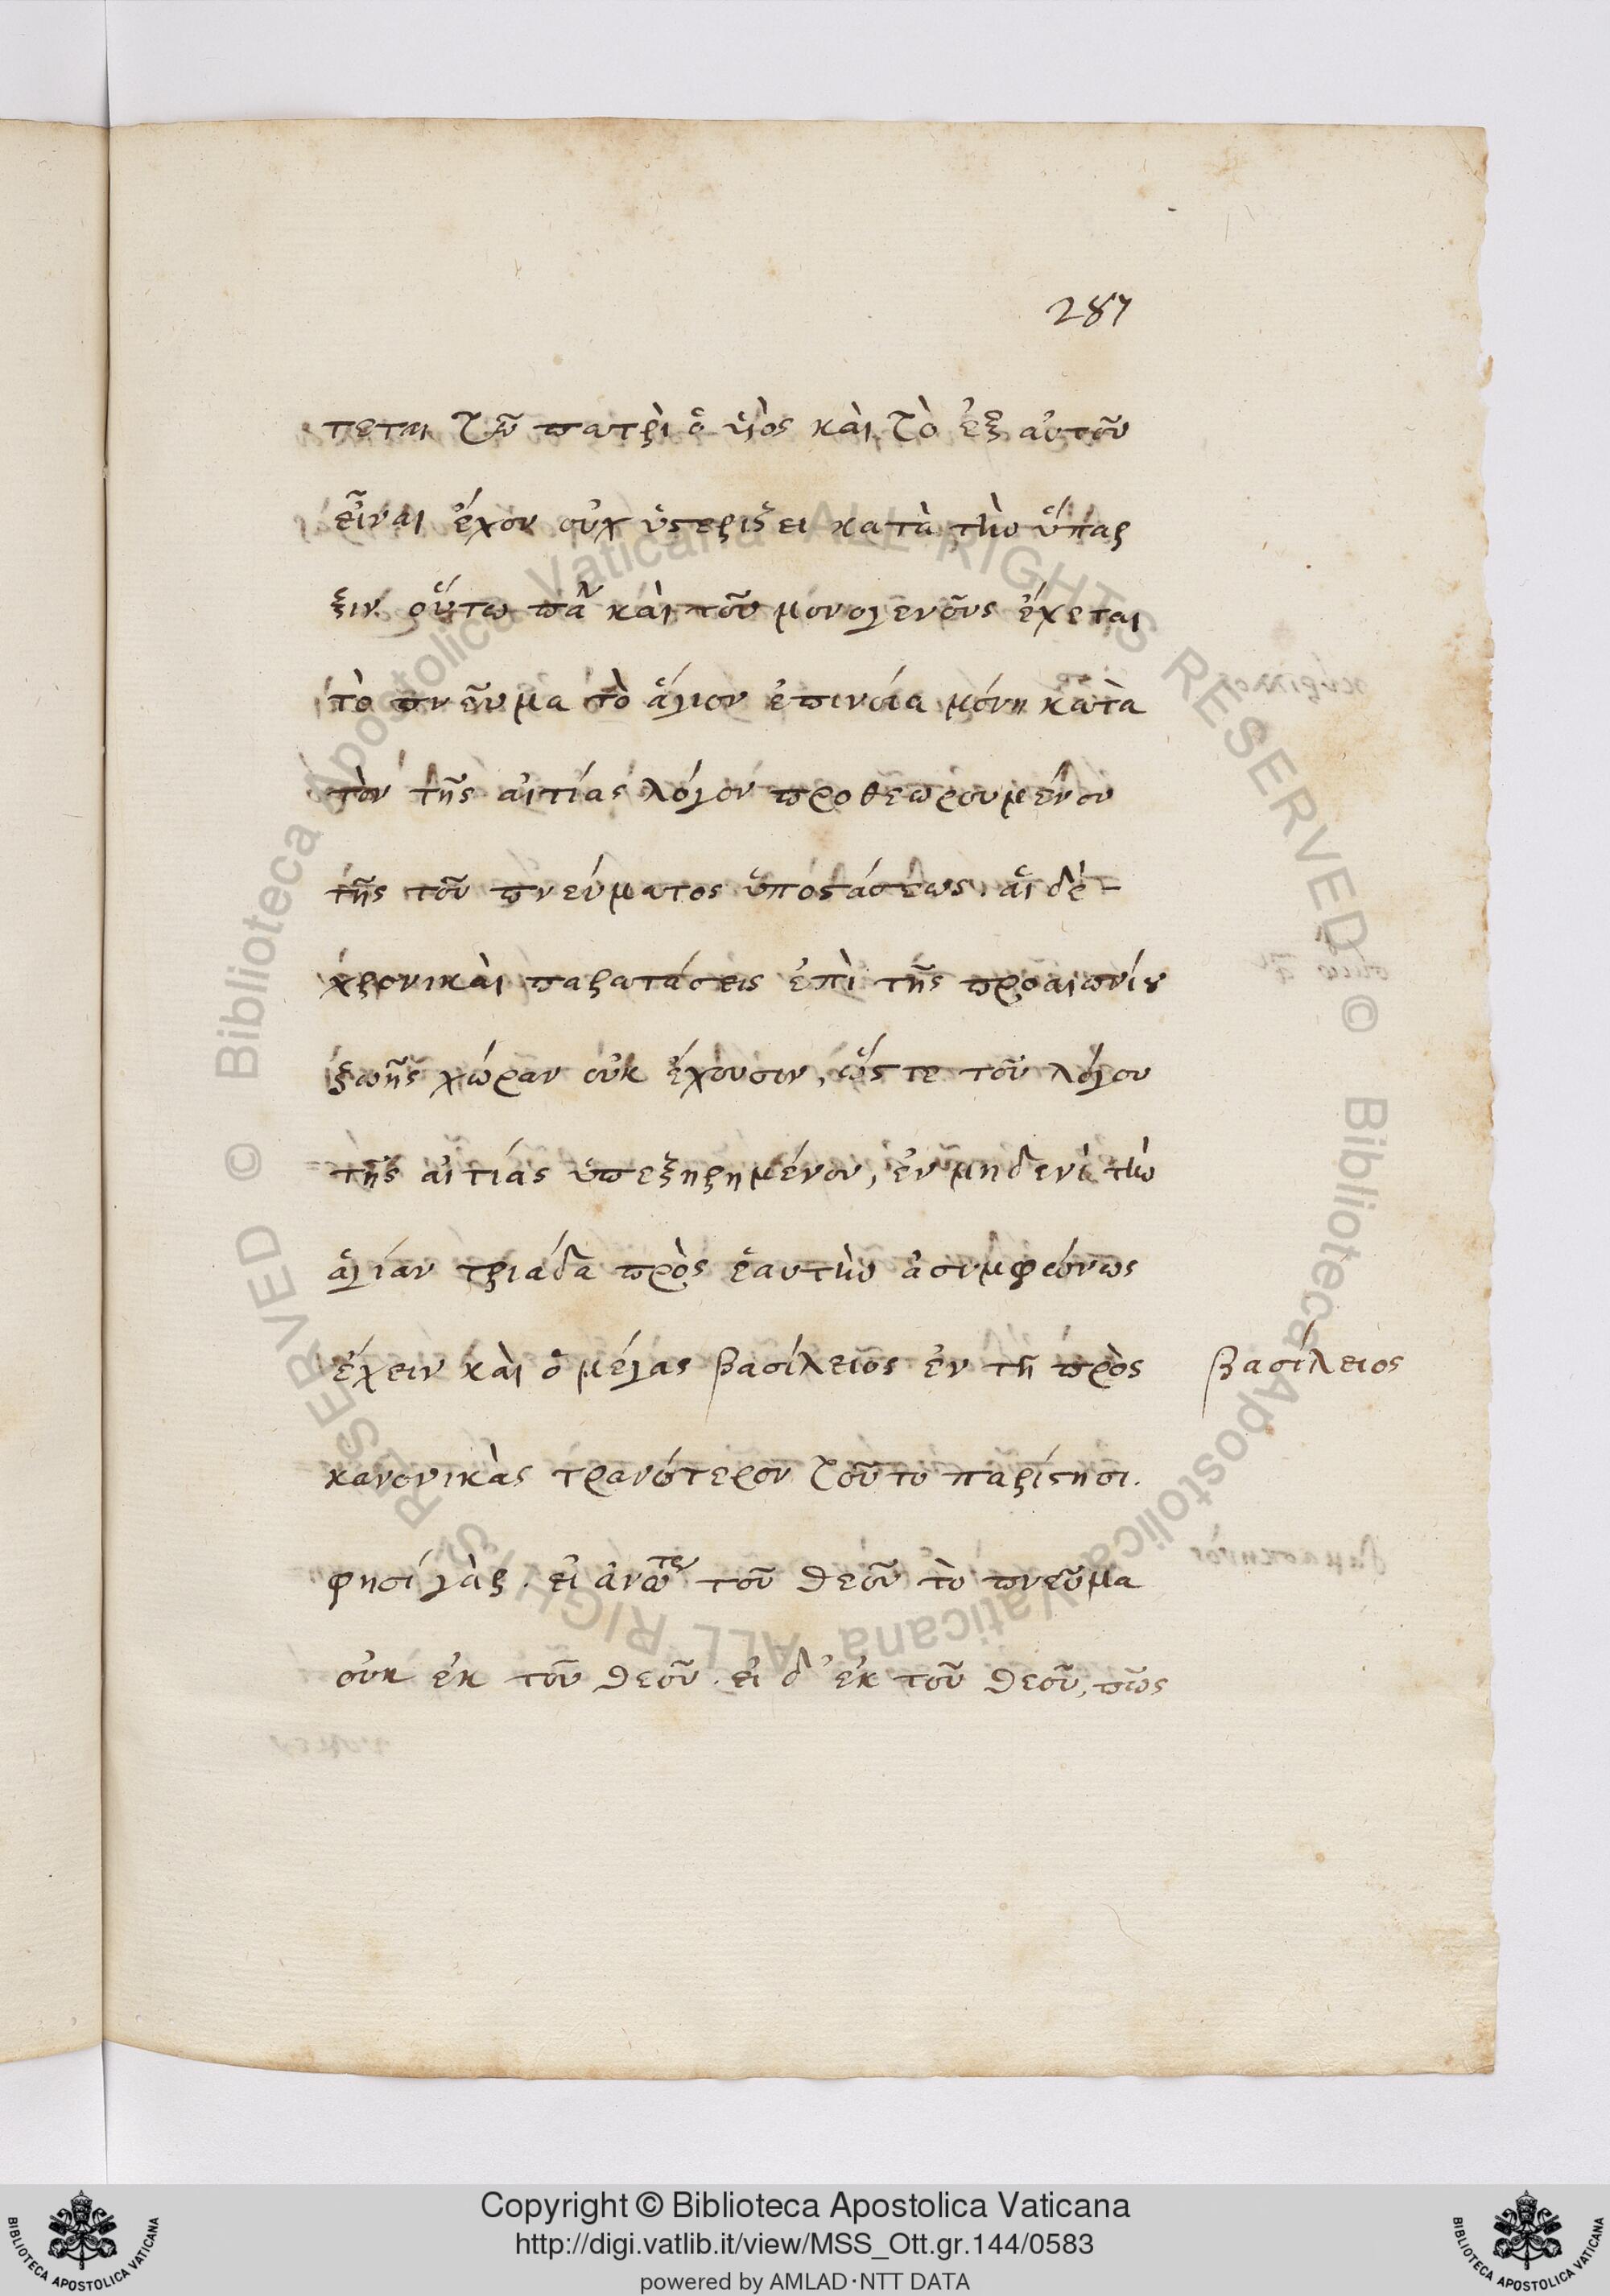 287
πεται τῶ πατρὶ ὁ υἱὸς καὶ τὸ ἐξ αὐτοῦ
εἶναι ἔχον οὐχ ὑστερίζει κατὰ τὴν ὕπαρ
ξιν οὕτω πα^λ καὶ τοῦ μονογενοῦς ἔχεται
τὸ πνεῦμα τὸ ἅγιον ἐπινοία μόνη κατὰ
τὸν τῆς αἰτίας λόγον προθεωρουμένου
τῆς τοῦ πνεύματος ὑποστάσεως. αἱ δὲ -
χρονικαὶ παρατάσεις ἐπὶ τῆς προαιωνίου
ζωῆς χώραν οὐκ ἔχουσιν, ὥστε τοῦ λόγου
τῆς αἰτίας ὑπεξηρημένου, ἐν μηδενὶ τὴν
ἁγίαν τριάδα πρὸς ἑαυτὴν ἀσυμφώνως
ἔχειν καὶ ὁ μέγας βασίλειος ἐν τῆ πρὸς
βασίλειος
κανονικὰς τρανώτερον τοῦτο παρίστησι.
φησί γὰρ. εἰ ἀνω^τε τοῦ θεοῦ τὸ πνεῦμα
οὐκ ἐκ τοῦ θεοῦ. εἰ δ' ἐκ τοῦ θεοῦ, πῶς
Biblioteca Apostolica Vaticana ALL RIGHTS RESERVED © Biblioteca Apostolica Vaticana ALL RIGHTS RESERVED ©
Copyright © Biblioteca Apostolica Vaticana
http://digi.vatlib.it/view/MSS_Ott.gr.144/0583
powered by AMLAD·NTT DATA
BIBLIOTECA APOSTOLICA VATICANA
BIBLIOTECA APOSTOLICA VATICANA